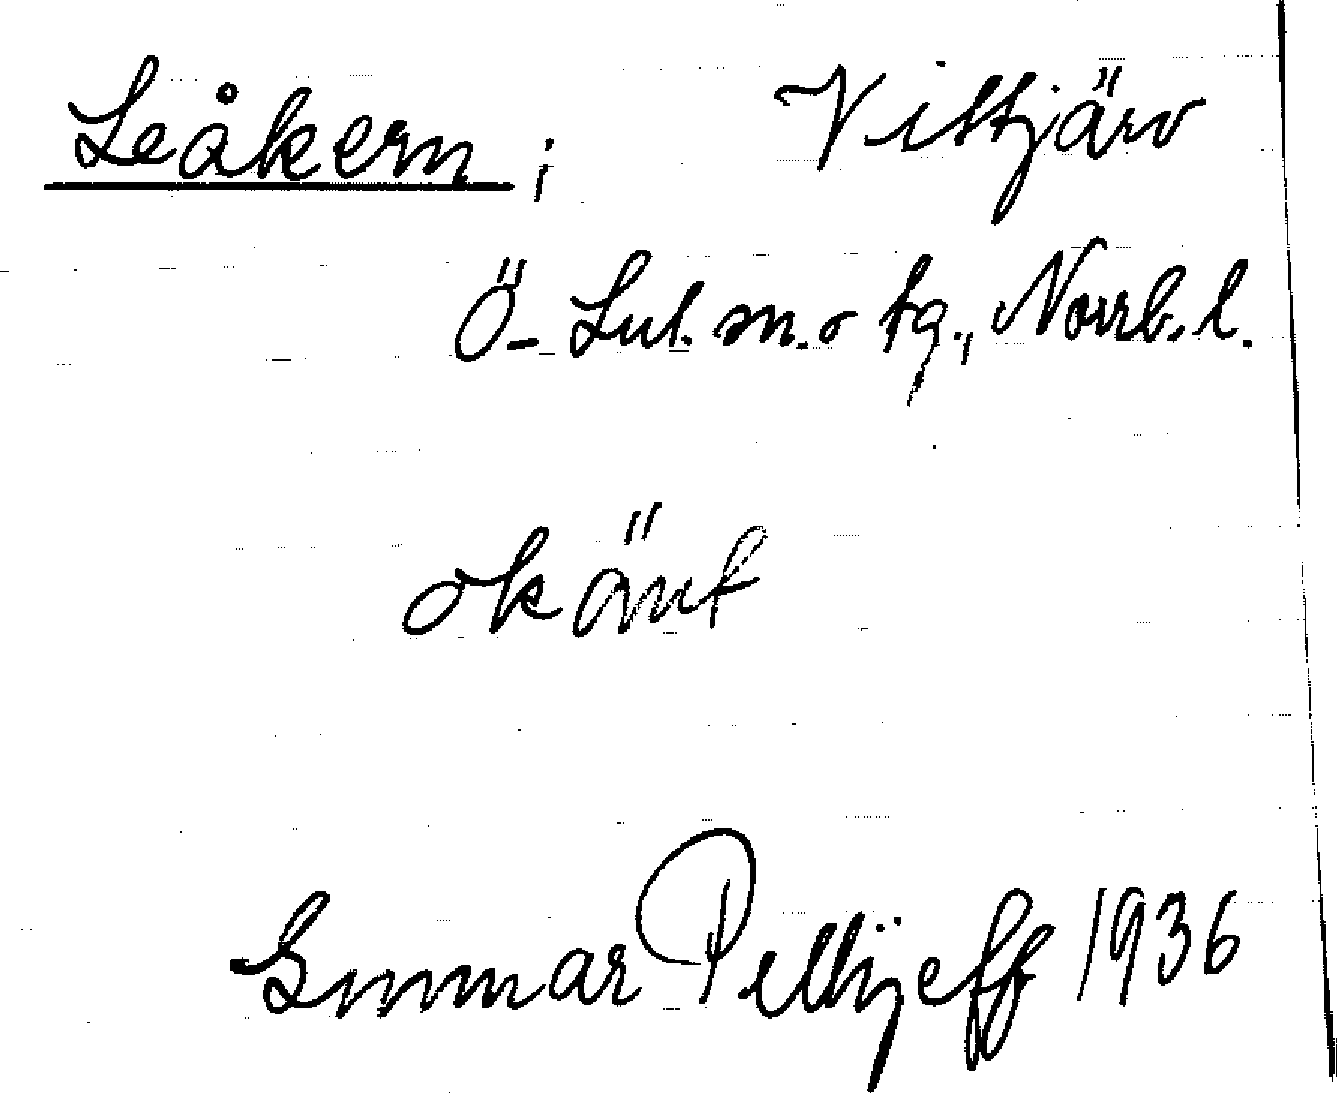 Leåkern; Vittjärv
Ö- Lul. m. o tg., Norrb. l.
okänt
Gunnar Pellijeff 1936